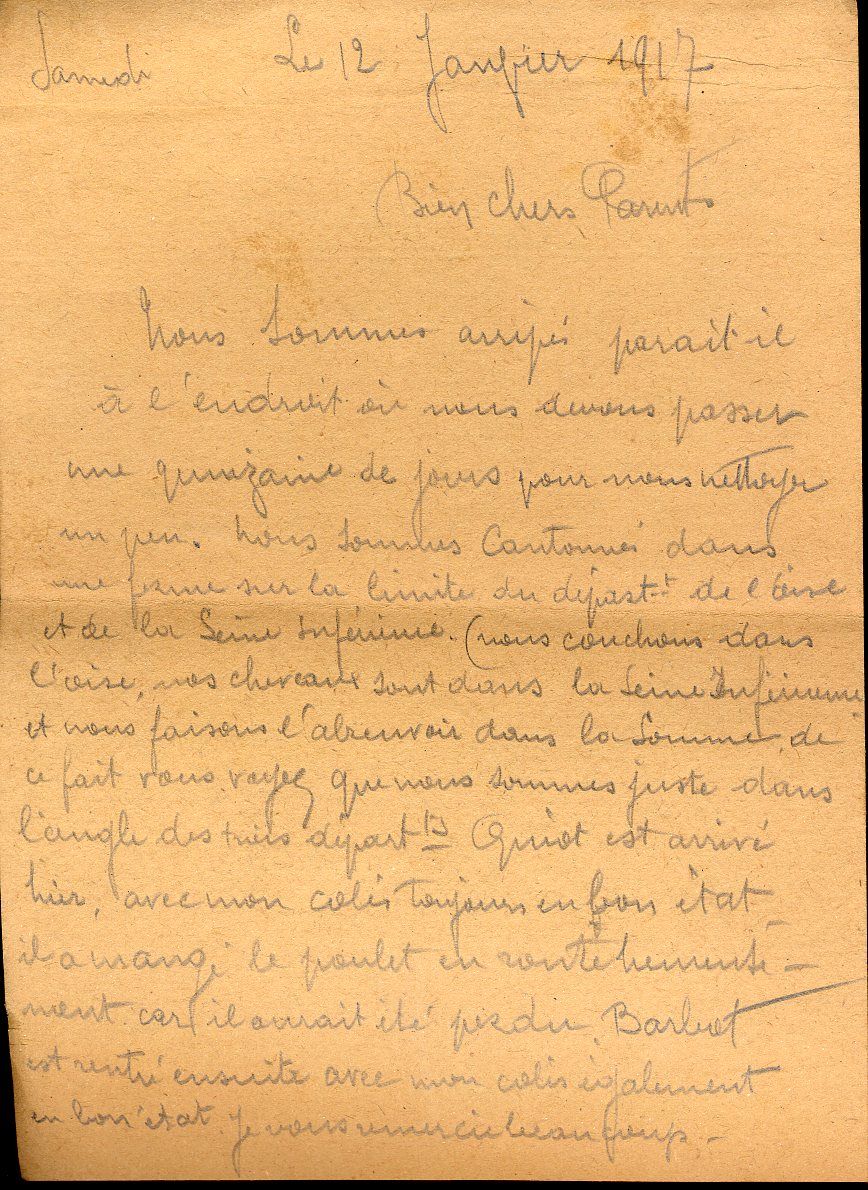 Samedi Le 12 Janvier 1917
Bien chers Parents
Nous sommes arrivés parait-il
à l'endroit où nous devons passer
une quinzaine de jours pour nous nettoyer
un peu. Nous sommes cantonnés dans
une ferme sur la limite du départ-t de l'Oise
et de la Seine Inférieure. (nous couchons dans
l'oise, nos chevaux sont dans la Seine Inférieure
et nous faisons l'abreuvoir dans la Somme, de
ce fait vous voyez que nous sommes juste dans
l'angle des trois départ-ts Quiot est arrivé
hier, avec mon colis toujours en bon état
il a mangé le poulet en route
ment car il aurait été perdu. Barbot
est rentré ensuite avec mon colis également
en bon état. Je vous remercie beaucoup -